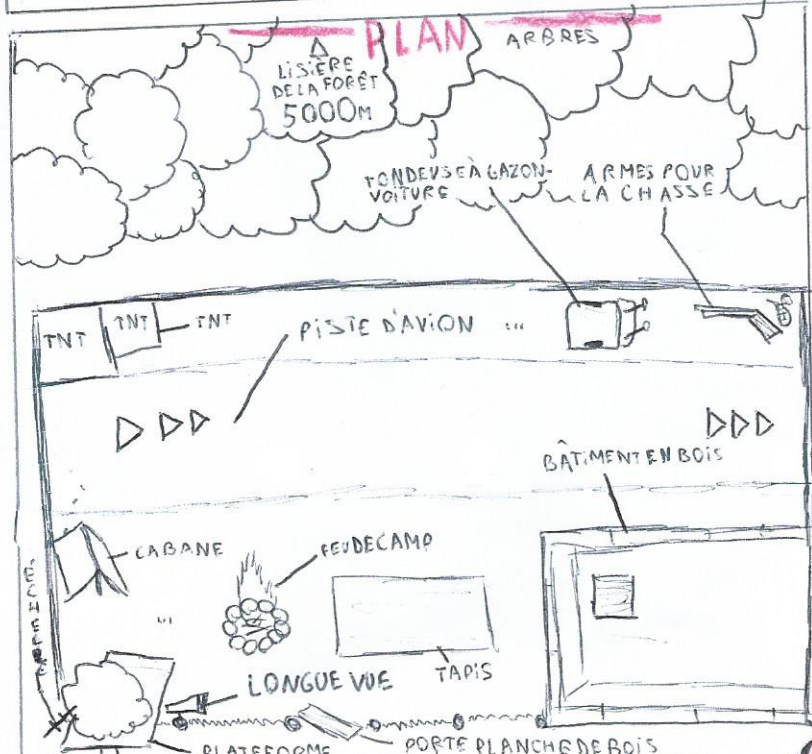 PLAN
ARBRES
LISIÈRE
DE LA FORÊT
5000M
TONDEUSE À GAZON-
VOITURE
ARMES POUR
LA CHASSE
TNT
TNT
TNT
PISTE D'AVION ...
BÂTIMENT EN BOIS
CABANE
FEU DE CAMP
...
TAPIS
LONGUE VUE
PLATEFORME
PORTE PLANCHE DE BOIS